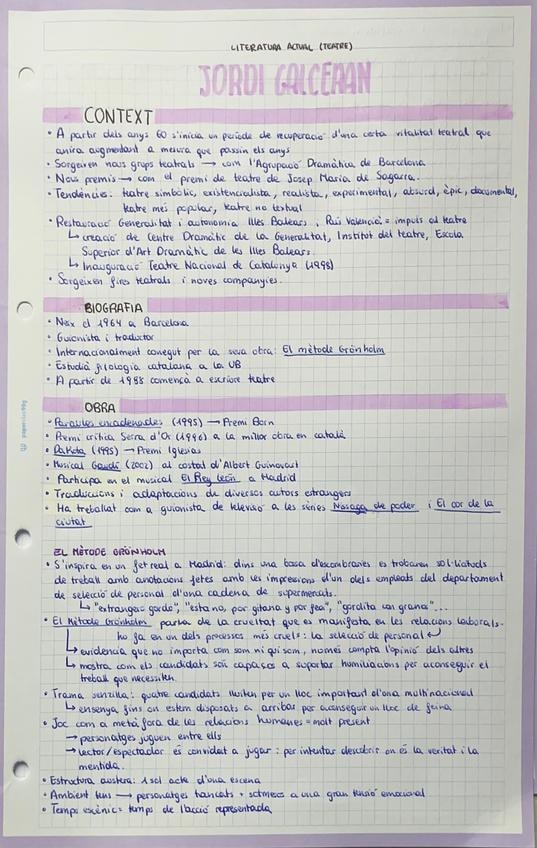 LITERATURA ACTUAL (TEATRE)
JORDI GALCERAN
CONTEXT
• A partir dels anys 60 s'inicia un període de recuperació d'una certa vitalitat teatral que
anirà augmentant a mesura que passin els anys
• Sorgeixen nous grups teatrals → com l'Agrupació Dramàtica de Barcelona
• Nous premis → com el premi de teatre de Josep Maria de Sagarra.
• Tendències: teatre simbòlic, existencialista, realista, experimental, absurd, èpic, documental,
teatre més popular, teatre no textual
• Restauració Generalitat i autonomia Illes Balears i País Valencià = impuls al teatre
↳ creació de Centre Dramàtic de la Generalitat, Institut del teatre, Escola
Superior d'Art Dramàtic de les Illes Balears.
↳ Inauguració Teatre Nacional de Catalunya (1998)
• Sorgeixen fires teatrals i noves companyies.
BIOGRAFIA
• Neix el 1964 a Barcelona
• Guionista i traductor
• Internacionalment conegut per la seva obra: El mètode Grönholm
• Estudià filologia catalana a la UB
• A partir de 1988 comença a escriure teatre
OBRA
• Paraules encadenades (1995) → Premi Born
• Premi crítica Serra d'Or (1996) a la millor obra en català
• Dakota (1995) → Premi Iglesias
• Musical Gaudí (2002) al costat d'Albert Guinovart
• Participa en el musical El Rey León a Madrid
• Traduccions i adaptacions de diversos autors estrangers
• Ha treballat com a guionista de televisió a les sèries Nissaga de poder i El cor de la
ciutat
EL MÈTODE GRÖNHOLM
• S'inspira en un fet real a Madrid: dins una bossa d'escombraries es trobaren sol·licituds
de treball amb anotacions fetes amb les impressions d'un dels empleats del departament
de selecció de personal d'una cadena de supermercats.
↳ "extranjera gorda", "esta no, por gitana y por fea", "gordita con grano"...
• El Mètode Grönholm parla de la crueltat que es manifesta en les relacions laborals.
ho fa en un dels processos més cruels: la selecció de personal ↵
↳ evidencia que no importa com som ni qui som, només compta l'opinió dels altres
↳ mostra com els candidats són capaços a suportar humiliacions per aconseguir el
treball que necessiten.
• Trama senzilla: quatre candidats lluiten per un lloc important d'una multinacional
↳ ensenya fins on estem disposats a arribar per aconseguir un lloc de feina
• Joc com a metàfora de les relacions humanes = molt present
→ personatges juguen entre ells
→ lector/espectador és convidat a jugar: per intentar descobrir on és la veritat i la
mentida.
• Estructura austera: 1 sol acte d'una escena
• Ambient tens → personatges tancats + sotmesos a una gran tensió emocional
• Temps escènic = temps de l'acció representada